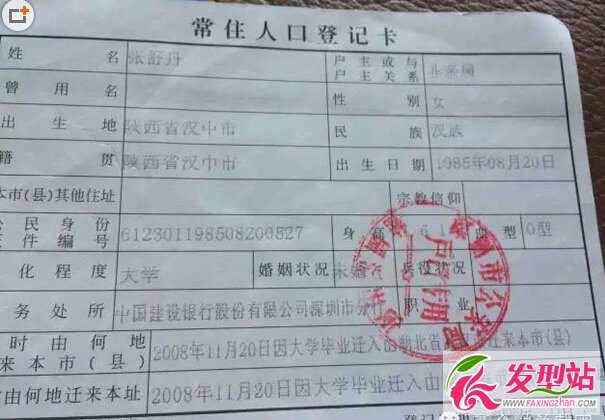 常住人口登记卡
姓 名 张舒丹 户主或与户主关系 非亲属
曾用名 性别 女
出生地 陕西省汉中市 民族 汉族
籍贯 陕西省汉中市 出生日期 1985年08月20日
本市(县)其他住址 宗教信仰
公民身份证件编号 612301198508200527 身高 血型 O型
化程度 大学 婚姻状况 未婚 兵役状况
务处所 中国建设银行股份有限公司深圳市分行 职业
时由何地来本市(县) 2008年11月20日因大学毕业迁入由湖北省 迁来本市(县)
由何地迁来本址 2008年11月20日因大学毕业迁入由
发型站
www.FAXINGZHAN.com